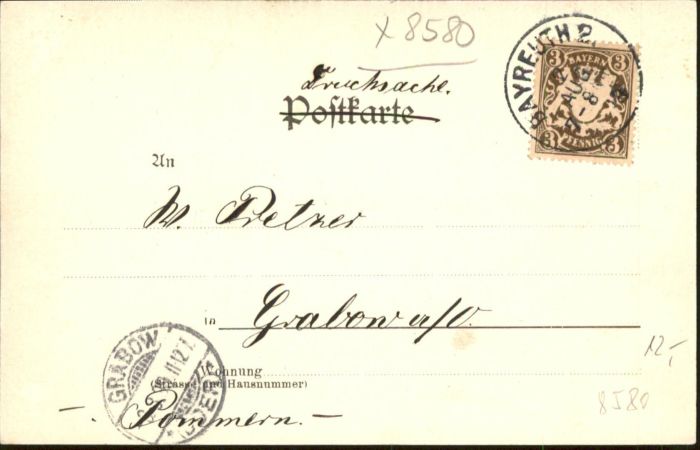 x 8580
Drucksache.
Postkarte
BAYREUTH 2
AUG
3 BAYERN 3
3 PFENNIG 3
An
W. Pretzer
in Grabow a/O.
Wohnung
(Strasse und Hausnummer)
- Pommern. -
GRABOW
(ODER)
12,-
8580